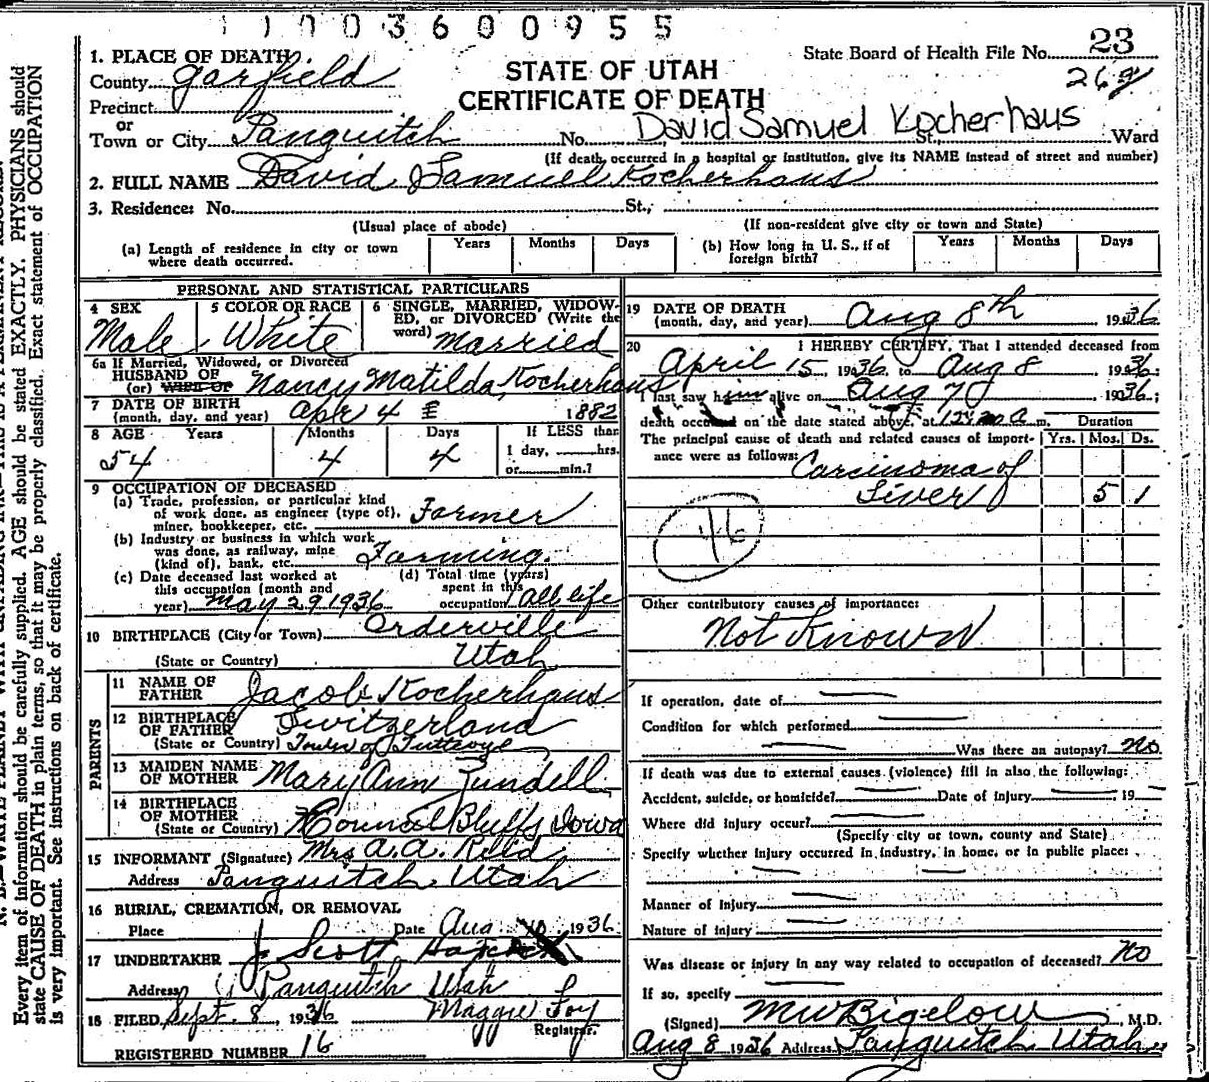 1 1 0 0 3 6 0 0 9 5 5
State Board of Health File No. 23
STATE OF UTAH
CERTIFICATE OF DEATH
1. PLACE OF DEATH
County Garfield
Precinct
or
Town or City Panguitch No. David Samuel Kocherhaus St., Ward
(If death occurred in a hospital or institution, give its NAME instead of street and number)
2. FULL NAME David Samuel Kocherhaus
3. Residence: No. St.,
(Usual place of abode) (If non-resident give city or town and State)
(a) Length of residence in city or town where death occurred. Years Months Days
(b) How long in U. S., if of foreign birth? Years Months Days
PERSONAL AND STATISTICAL PARTICULARS
4 SEX Male
5 COLOR OR RACE White
6 SINGLE, MARRIED, WIDOWED, or DIVORCED (Write the word) married
6a If Married, Widowed, or Divorced
HUSBAND OF
(or) WIFE OF Nancy Matilda Kocherhaus
7 DATE OF BIRTH
(month, day, and year) Apr 4 1882
8 AGE Years Months Days If LESS than
54 4 4 1 day, hrs.
or min.?
9 OCCUPATION OF DECEASED
(a) Trade, profession, or particular kind
of work done, as engineer (type of),
miner, bookkeeper, etc. Farmer
(b) Industry or business in which work
was done, as railway, mine
(kind of), bank, etc. Farming
(c) Date deceased last worked at
this occupation (month and
year) May 29 1936
(d) Total time (years)
spent in this
occupation All life
10 BIRTHPLACE (City or Town) Orderville
(State or Country) Utah
PARENTS
11 NAME OF
FATHER Jacob Kocherhaus
12 BIRTHPLACE
OF FATHER Switzerland
(State or Country) Town of
13 MAIDEN NAME
OF MOTHER Mary Ann Zundell
14 BIRTHPLACE
OF MOTHER
(State or Country) Council Bluffs Iowa
15 INFORMANT (Signature) Mrs A. A. Reid
Address Panguitch Utah
16 BURIAL, CREMATION, OR REMOVAL
Place Date Aug 10 1936
17 UNDERTAKER J Scott
Address Panguitch Utah
18 FILED Sept. 8, 1936 Maggie Foy
Registrar.
REGISTERED NUMBER 16
19 DATE OF DEATH
(month, day, and year) Aug 8th 1936
20 I HEREBY CERTIFY, That I attended deceased from
April 15, 1936, to Aug 8 1936;
I last saw him alive on Aug 7 1936;
death occurred on the date stated above, at m.
Duration
The principal cause of death and related causes of importance were as follows: Yrs. Mos. Ds.
Carcinoma of
Liver 5 1
46
Other contributory causes of importance:
Not Known
If operation, date of
Condition for which performed
Was there an autopsy? No
If death was due to external causes (violence) fill in also the following:
Accident, suicide, or homicide? Date of injury , 19
Where did injury occur?
(Specify city or town, county and State)
Specify whether injury occurred in industry, in home, or in public place:
Manner of injury
Nature of injury
Was disease or injury in any way related to occupation of deceased? No
If so, specify
(Signed) M W Bigelow, M.D.
Aug 8 1936 Address Panguitch Utah
Every item of information should be carefully supplied. AGE should be stated EXACTLY. PHYSICIANS should
state CAUSE OF DEATH in plain terms, so that it may be properly classified. Exact statement of OCCUPATION
is very important. See instructions on back of certificate.